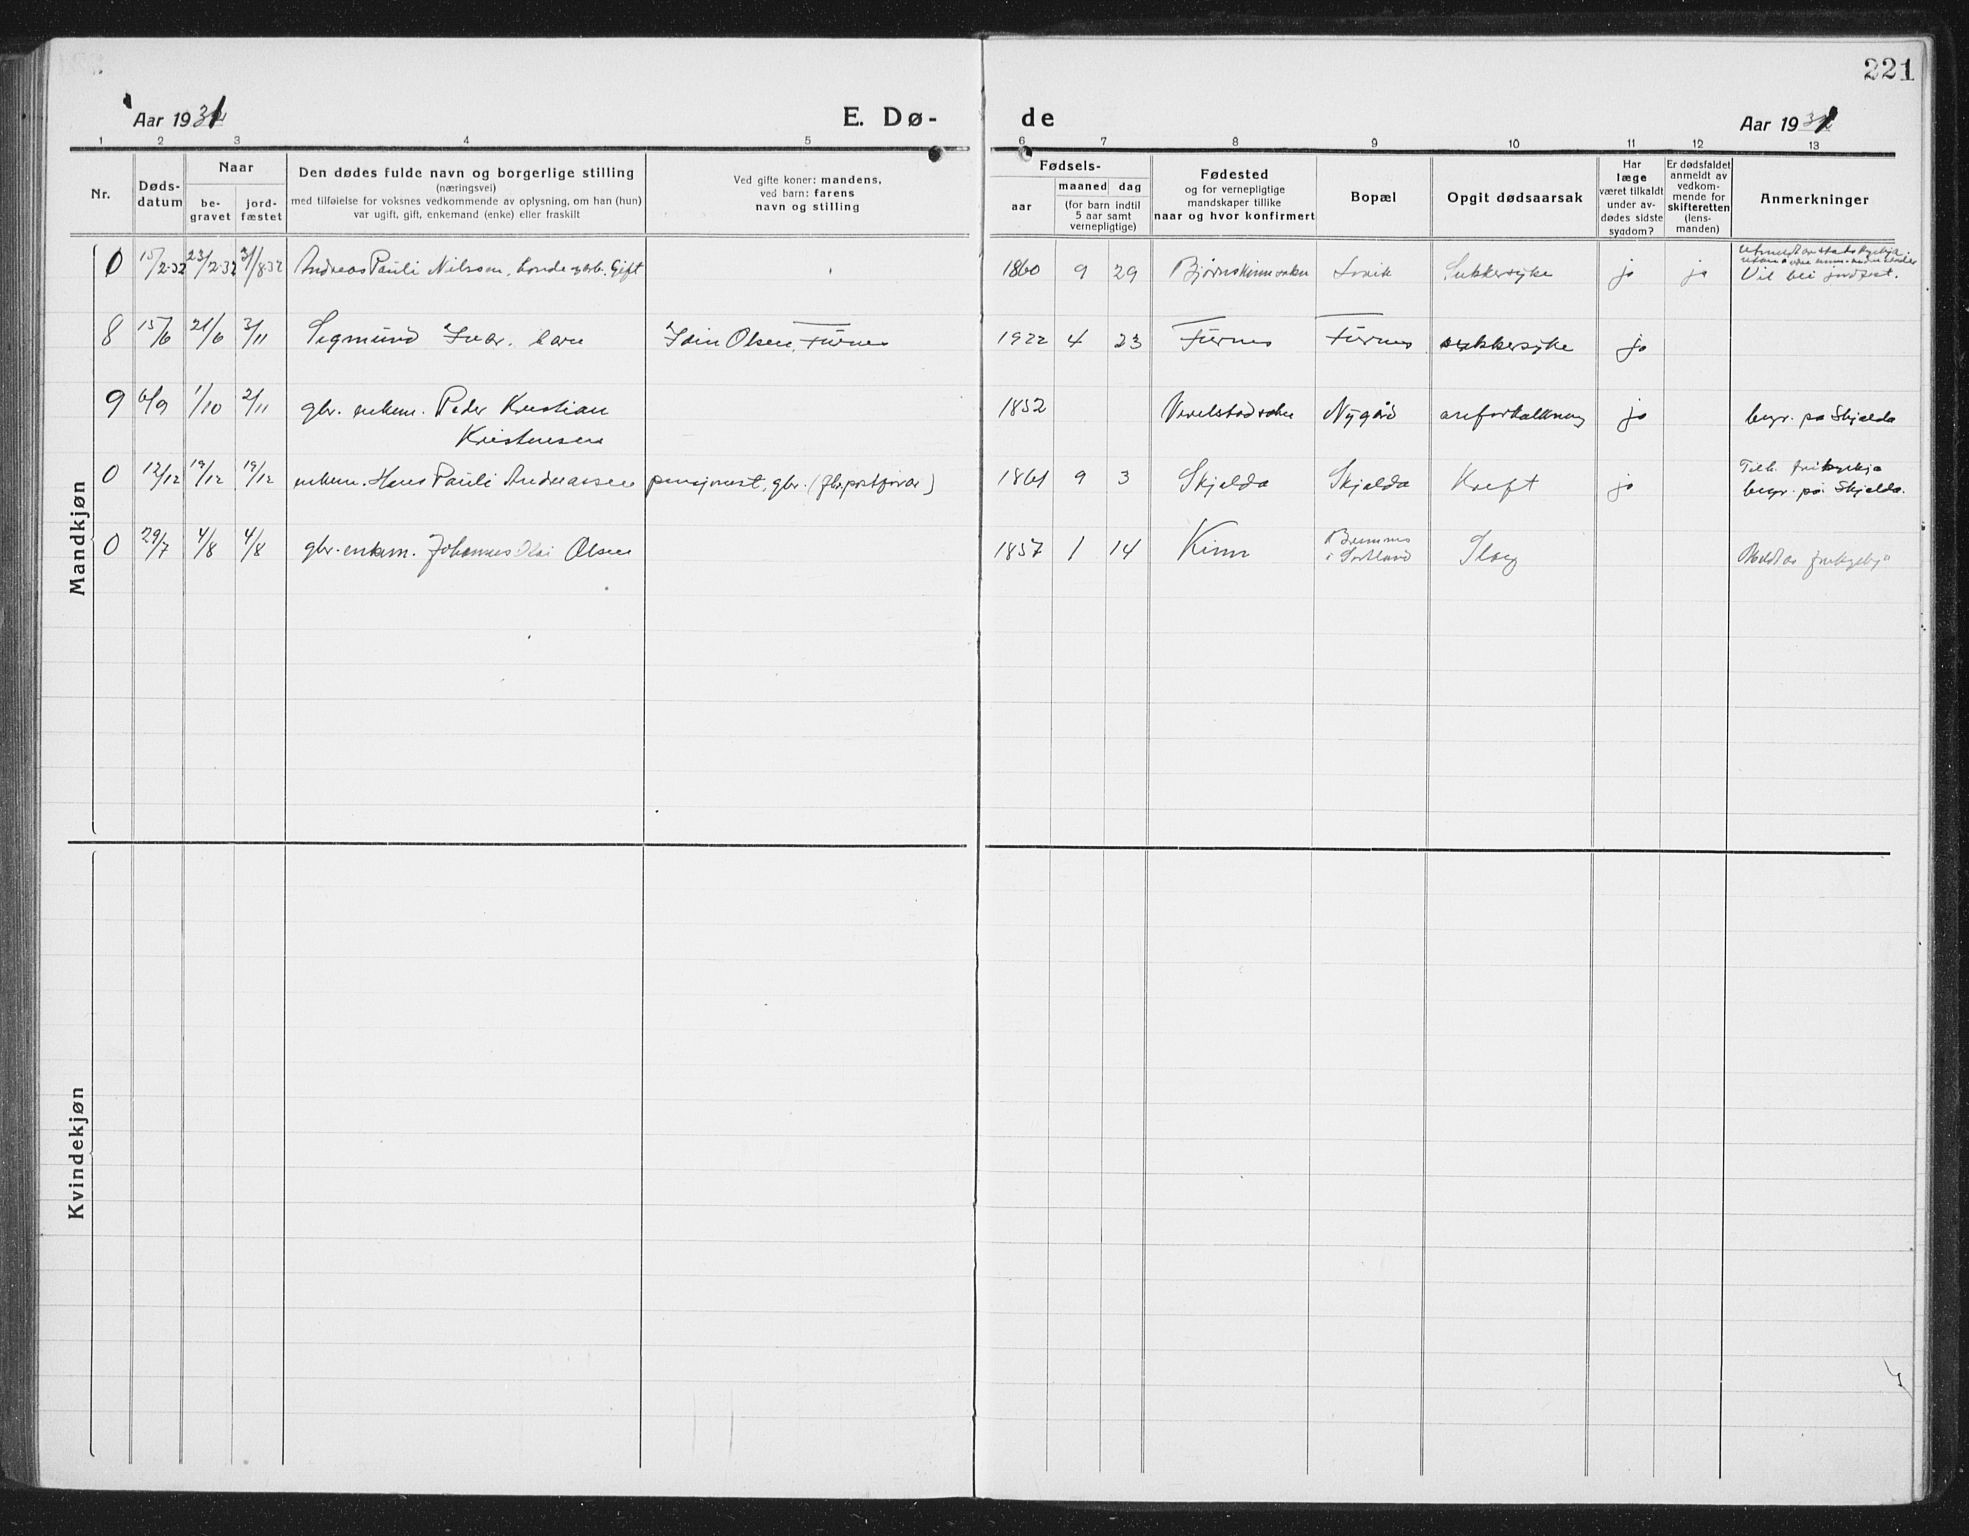 221
Aar 1931
E. Dø-
de
Aar 1931
1 2 3 4 5 6 7 8 9 10 11 12 13
Nr.
Døds-
datum
Naar
be-
gravet
jord-
fæstet
Den dødes fulde navn og borgerlige stilling
(næringsvei)
med tilføielse for voksnes vedkommende av oplysning, om han (hun)
var ugift, gift, enkemand (enke) eller fraskilt
Ved gifte koner: mandens,
ved barn: farens
navn og stilling
Fødsels-
aar
maaned dag
(for barn indtil
5 aar samt
vernepligtige)
Fødested
og for vernepligtige
mandskaper tillike
naar og hvor konfirmert
Bopæl
Opgit dødsaarsak
Har
læge
været tilkaldt
under av-
dødes sidste
sygdom?
Er dødsfaldet
anmeldt av
vedkom-
mende for
skifteretten
(lens-
manden)
Anmerkninger
Mandkjøn
0 15/2-32 23/2-32 31/8-32 Andreas Pauli Nilssen, Gift 1860 9 29 Sukkersyke ja ja
Vil bli jordfest.
8 15/6 21/6 3/11 Sigmund Ivar, barn Idin Olsen, Furnes 1922 4 23 Furnes Furnes sukkersyke ja
9 6/9 1/10 2/11 gbr. enkem. Peder Kristian 1852 Nygård areforkalkning ja begr. på Skjelda
Kristensen
0 12/12 19/12 19/12 enkem. Hans Pauli Andreassen pensjonist, gbr. 1861 9 3 Skjelda Skjelda Kreft ja
begr. på Skjelda.
0 29/7 4/8 4/8 gbr. enkem. Johannes Olai Olsen 1857 1 14 Kinn
i Sortland Slag
Kvindekjøn